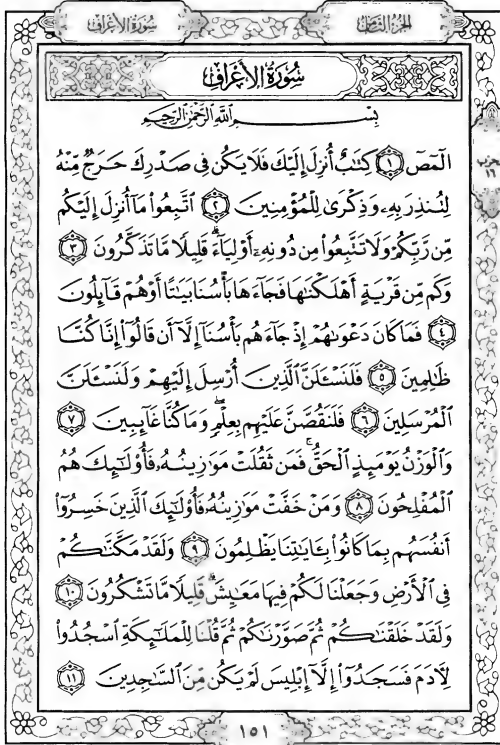 سُورَةُ الأَعْرَافِ
الجُزْءُ الثَّامِنُ
سُورَةُ الأَعْرَافِ
بِسْمِ ٱللَّهِ ٱلرَّحْمَٰنِ ٱلرَّحِيمِ
الٓمٓصٓ ١ كِتَٰبٌ أُنزِلَ إِلَيْكَ فَلَا يَكُن فِى صَدْرِكَ حَرَجٌ مِّنْهُ
لِتُنذِرَ بِهِۦ وَذِكْرَىٰ لِلْمُؤْمِنِينَ ٢ ٱتَّبِعُوا۟ مَآ أُنزِلَ إِلَيْكُم
مِّن رَّبِّكُمْ وَلَا تَتَّبِعُوا۟ مِن دُونِهِۦٓ أَوْلِيَآءَ ۗ قَلِيلًا مَّا تَذَكَّرُونَ ٣
وَكَم مِّن قَرْيَةٍ أَهْلَكْنَٰهَا فَجَآءَهَا بَأْسُنَا بَيَٰتًا أَوْ هُمْ قَآئِلُونَ
٤ فَمَا كَانَ دَعْوَىٰهُمْ إِذْ جَآءَهُم بَأْسُنَآ إِلَّآ أَن قَالُوٓا۟ إِنَّا كُنَّا
ظَٰلِمِينَ ٥ فَلَنَسْـَٔلَنَّ ٱلَّذِينَ أُرْسِلَ إِلَيْهِمْ وَلَنَسْـَٔلَنَّ
ٱلْمُرْسَلِينَ ٦ فَلَنَقُصَّنَّ عَلَيْهِم بِعِلْمٍ ۖ وَمَا كُنَّا غَآئِبِينَ ٧
وَٱلْوَزْنُ يَوْمَئِذٍ ٱلْحَقُّ ۚ فَمَن ثَقُلَتْ مَوَٰزِينُهُۥ فَأُو۟لَٰٓئِكَ هُمُ
ٱلْمُفْلِحُونَ ٨ وَمَنْ خَفَّتْ مَوَٰزِينُهُۥ فَأُو۟لَٰٓئِكَ ٱلَّذِينَ خَسِرُوٓا۟
أَنفُسَهُم بِمَا كَانُوا۟ بِـَٔايَٰتِنَا يَظْلِمُونَ ٩ وَلَقَدْ مَكَّنَّٰكُمْ
فِى ٱلْأَرْضِ وَجَعَلْنَا لَكُمْ فِيهَا مَعَٰيِشَ ۗ قَلِيلًا مَّا تَشْكُرُونَ ١٠
وَلَقَدْ خَلَقْنَٰكُمْ ثُمَّ صَوَّرْنَٰكُمْ ثُمَّ قُلْنَا لِلْمَلَٰٓئِكَةِ ٱسْجُدُوا۟
لِـَٔادَمَ فَسَجَدُوٓا۟ إِلَّآ إِبْلِيسَ لَمْ يَكُن مِّنَ ٱلسَّٰجِدِينَ ١١
حزب
١٦
١٥١